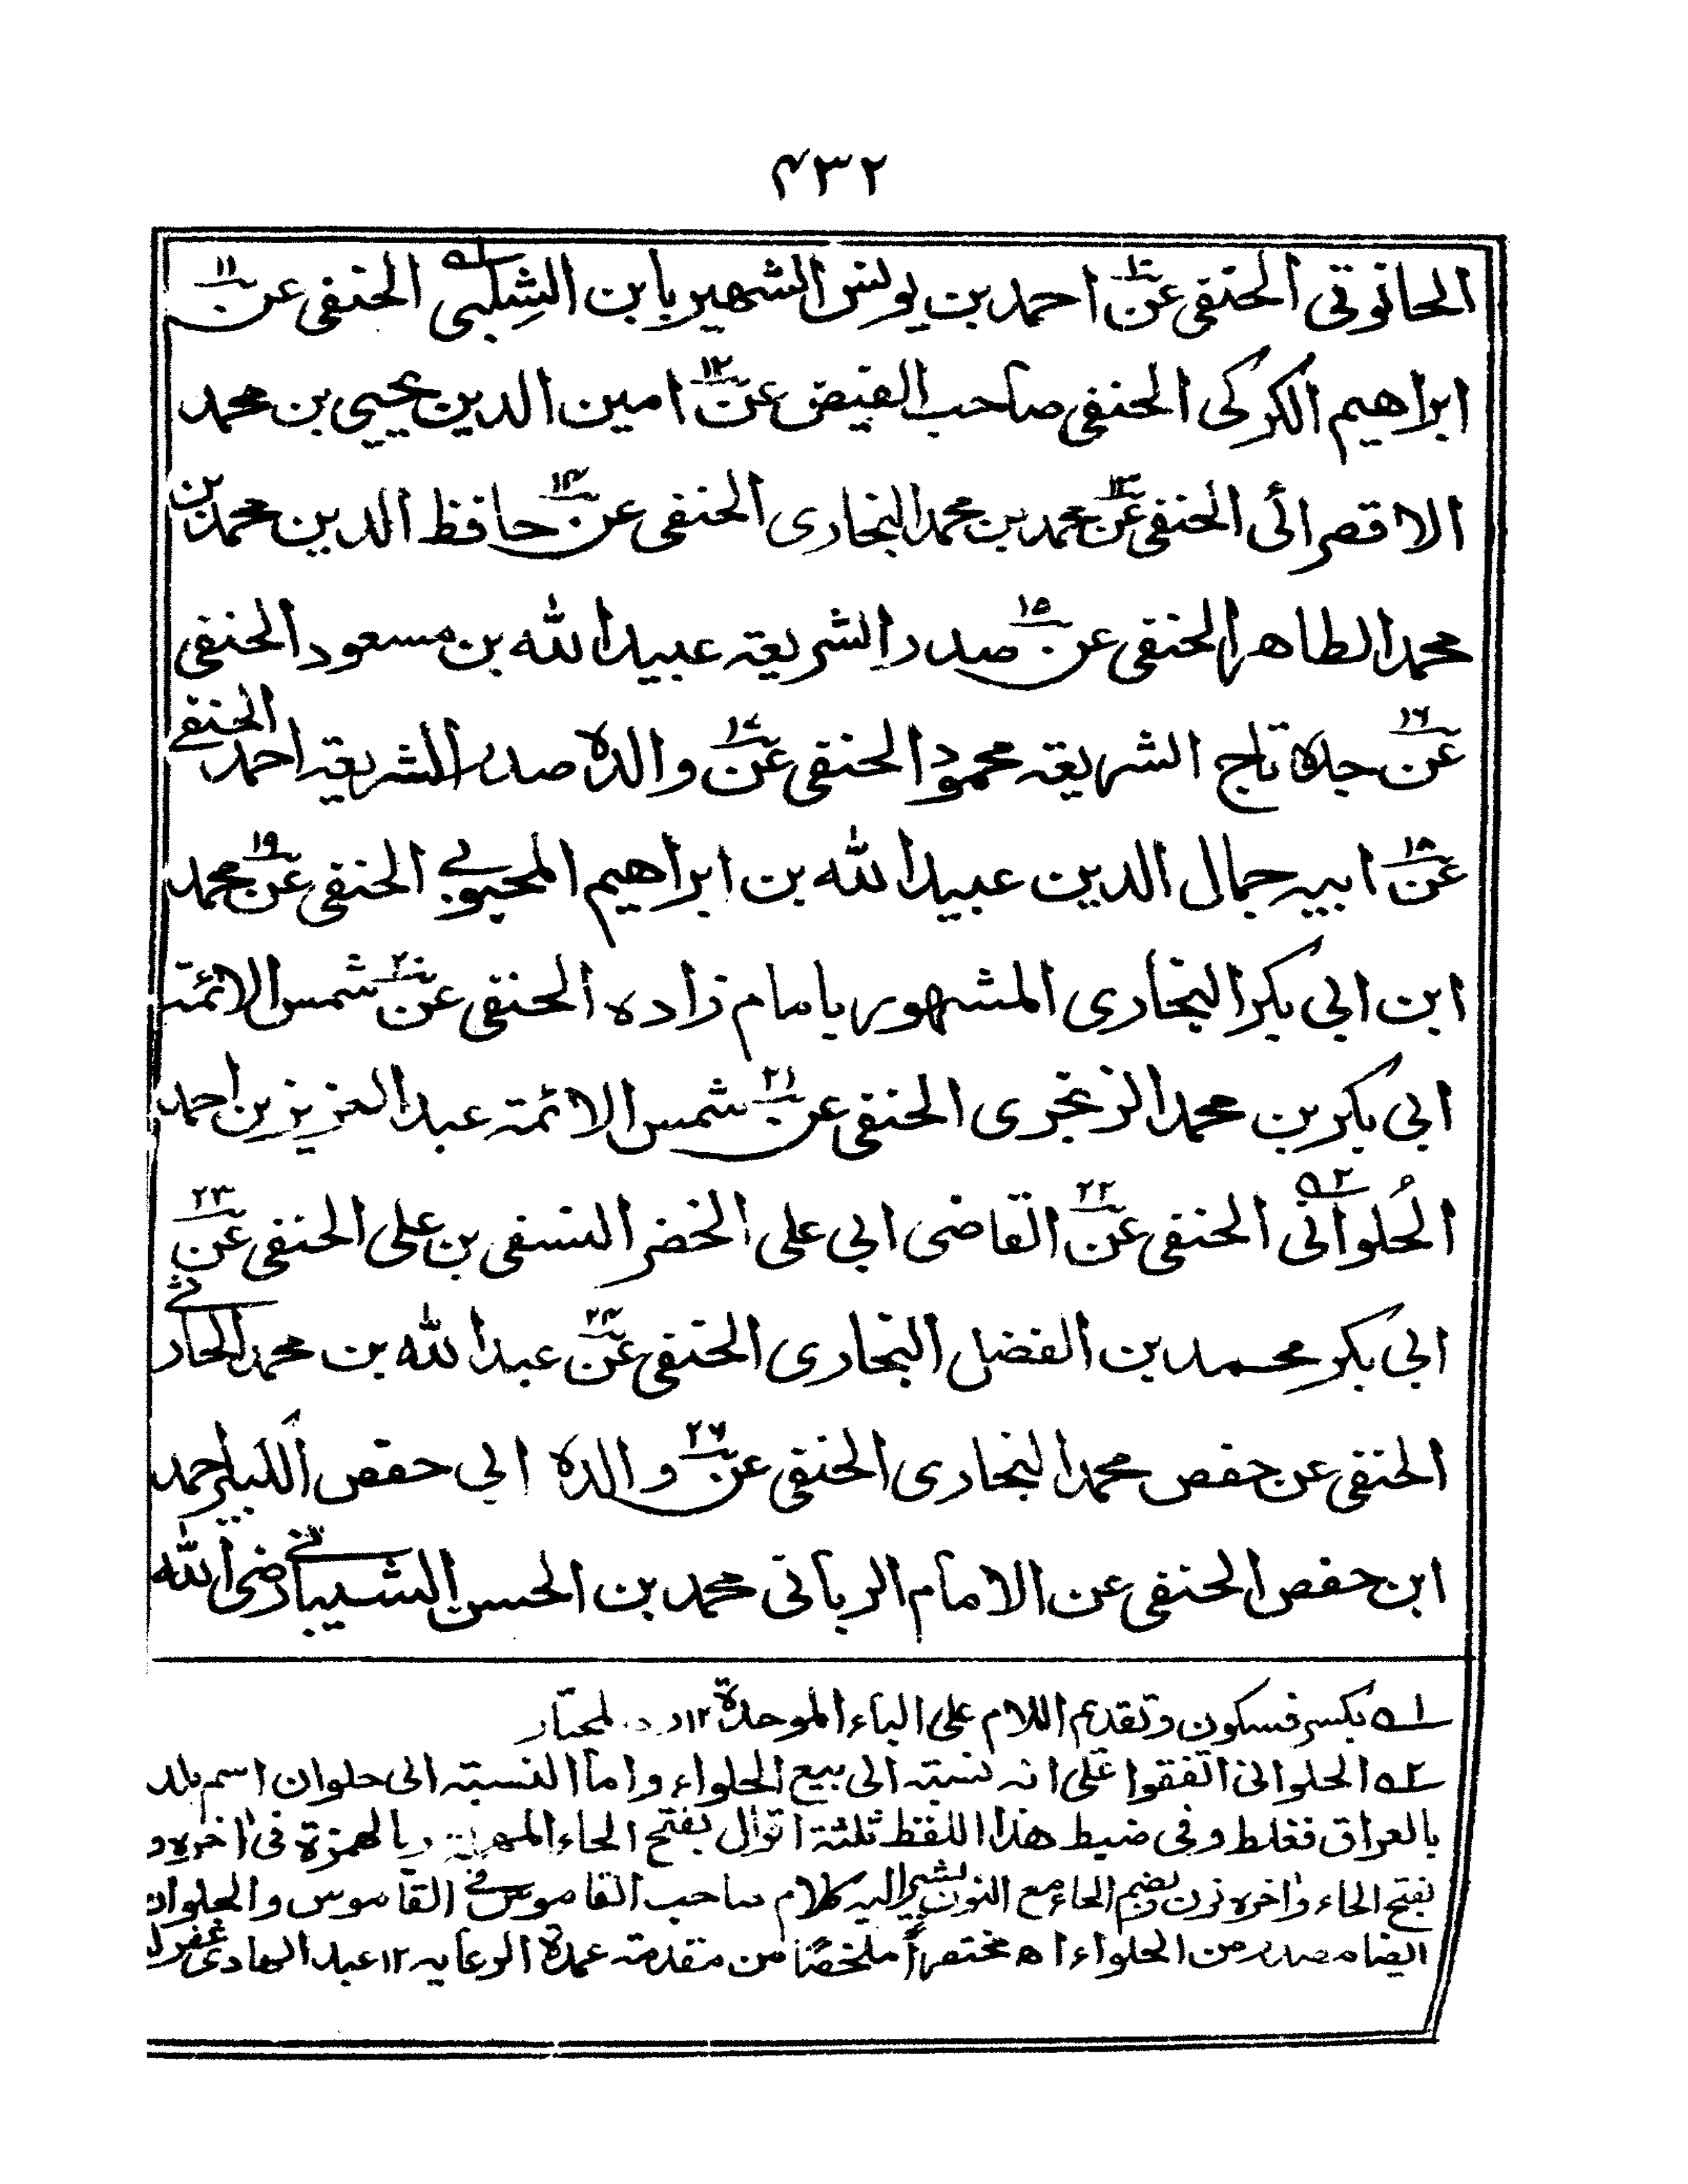 ٤٣٢
الحانوتی الحنفی عن ١٠ احمد بن یونس الشهیر بابن الشِلبی ١ الحنفی عن ١١
ابراهیم الکرکی الحنفی صاحب الفیض عن ١٢ امین الدین یحیی بن محمد
الاقصرائی الحنفی عن ١٣ محمد بن محمد البخاری الحنفی عن ١٤ حافظ الدین محمد بن
محمد الطاهر الحنفی عن ١٥ صدر الشریعۃ عبید الله بن مسعود الحنفی
عن ١٦ جدہ تاج الشریعۃ محمود الحنفی عن ١٧ والدہ صدر الشریعۃ احمد الحنفی
عن ١٨ ابیہ جمال الدین عبید الله بن ابراهیم المحبوبی الحنفی عن ١٩ محمد
ابن ابی بکر البخاری المشهور بامام زادہ الحنفی عن ٢٠ شمس الائمۃ
ابی بکر بن محمد الزرنجری الحنفی عن ٢١ شمس الائمۃ عبد العزیز بن احمد
الحُلوانی ٢ الحنفی عن ٢٢ القاضی ابی علی الخضر النسفی بن علی الحنفی عن ٢٣
ابی بکر محمد بن الفضل البخاری الحنفی عن ٢٤ عبد الله بن محمد الحارثی
الحنفی عن حفص محمد البخاری الحنفی عن ٢٦ والدہ ابی حفص الکبیر احمد
ابن حفص الحنفی عن الامام الربانی محمد بن الحسن الشیبانی رضی الله
١ بکسر فسکون وتقدیم اللام علی الباء الموحدۃ ١٢
٢ الحلوانی اتفقوا علی انہ نسبتہ الی بیع الحلواء واما النسبتہ الی حلوان اسم بلد
بالعراق فغلط وفی ضبط هذا اللفظ ثلثۃ اقوال بفتح الحاء المهملۃ وبالهمزۃ فی اخرہ و
بفتح الحاء واخرہ نون وبضم الحاء مع النون یشیر الیہ کلام صاحب القاموس فی القاموس والحلوان
ایضا مصدر من الحلواء اھ مختصراً ملخصًا من مقدمۃ عمدۃ الرعایہ ١٢ عبد الهادی غفرلہ